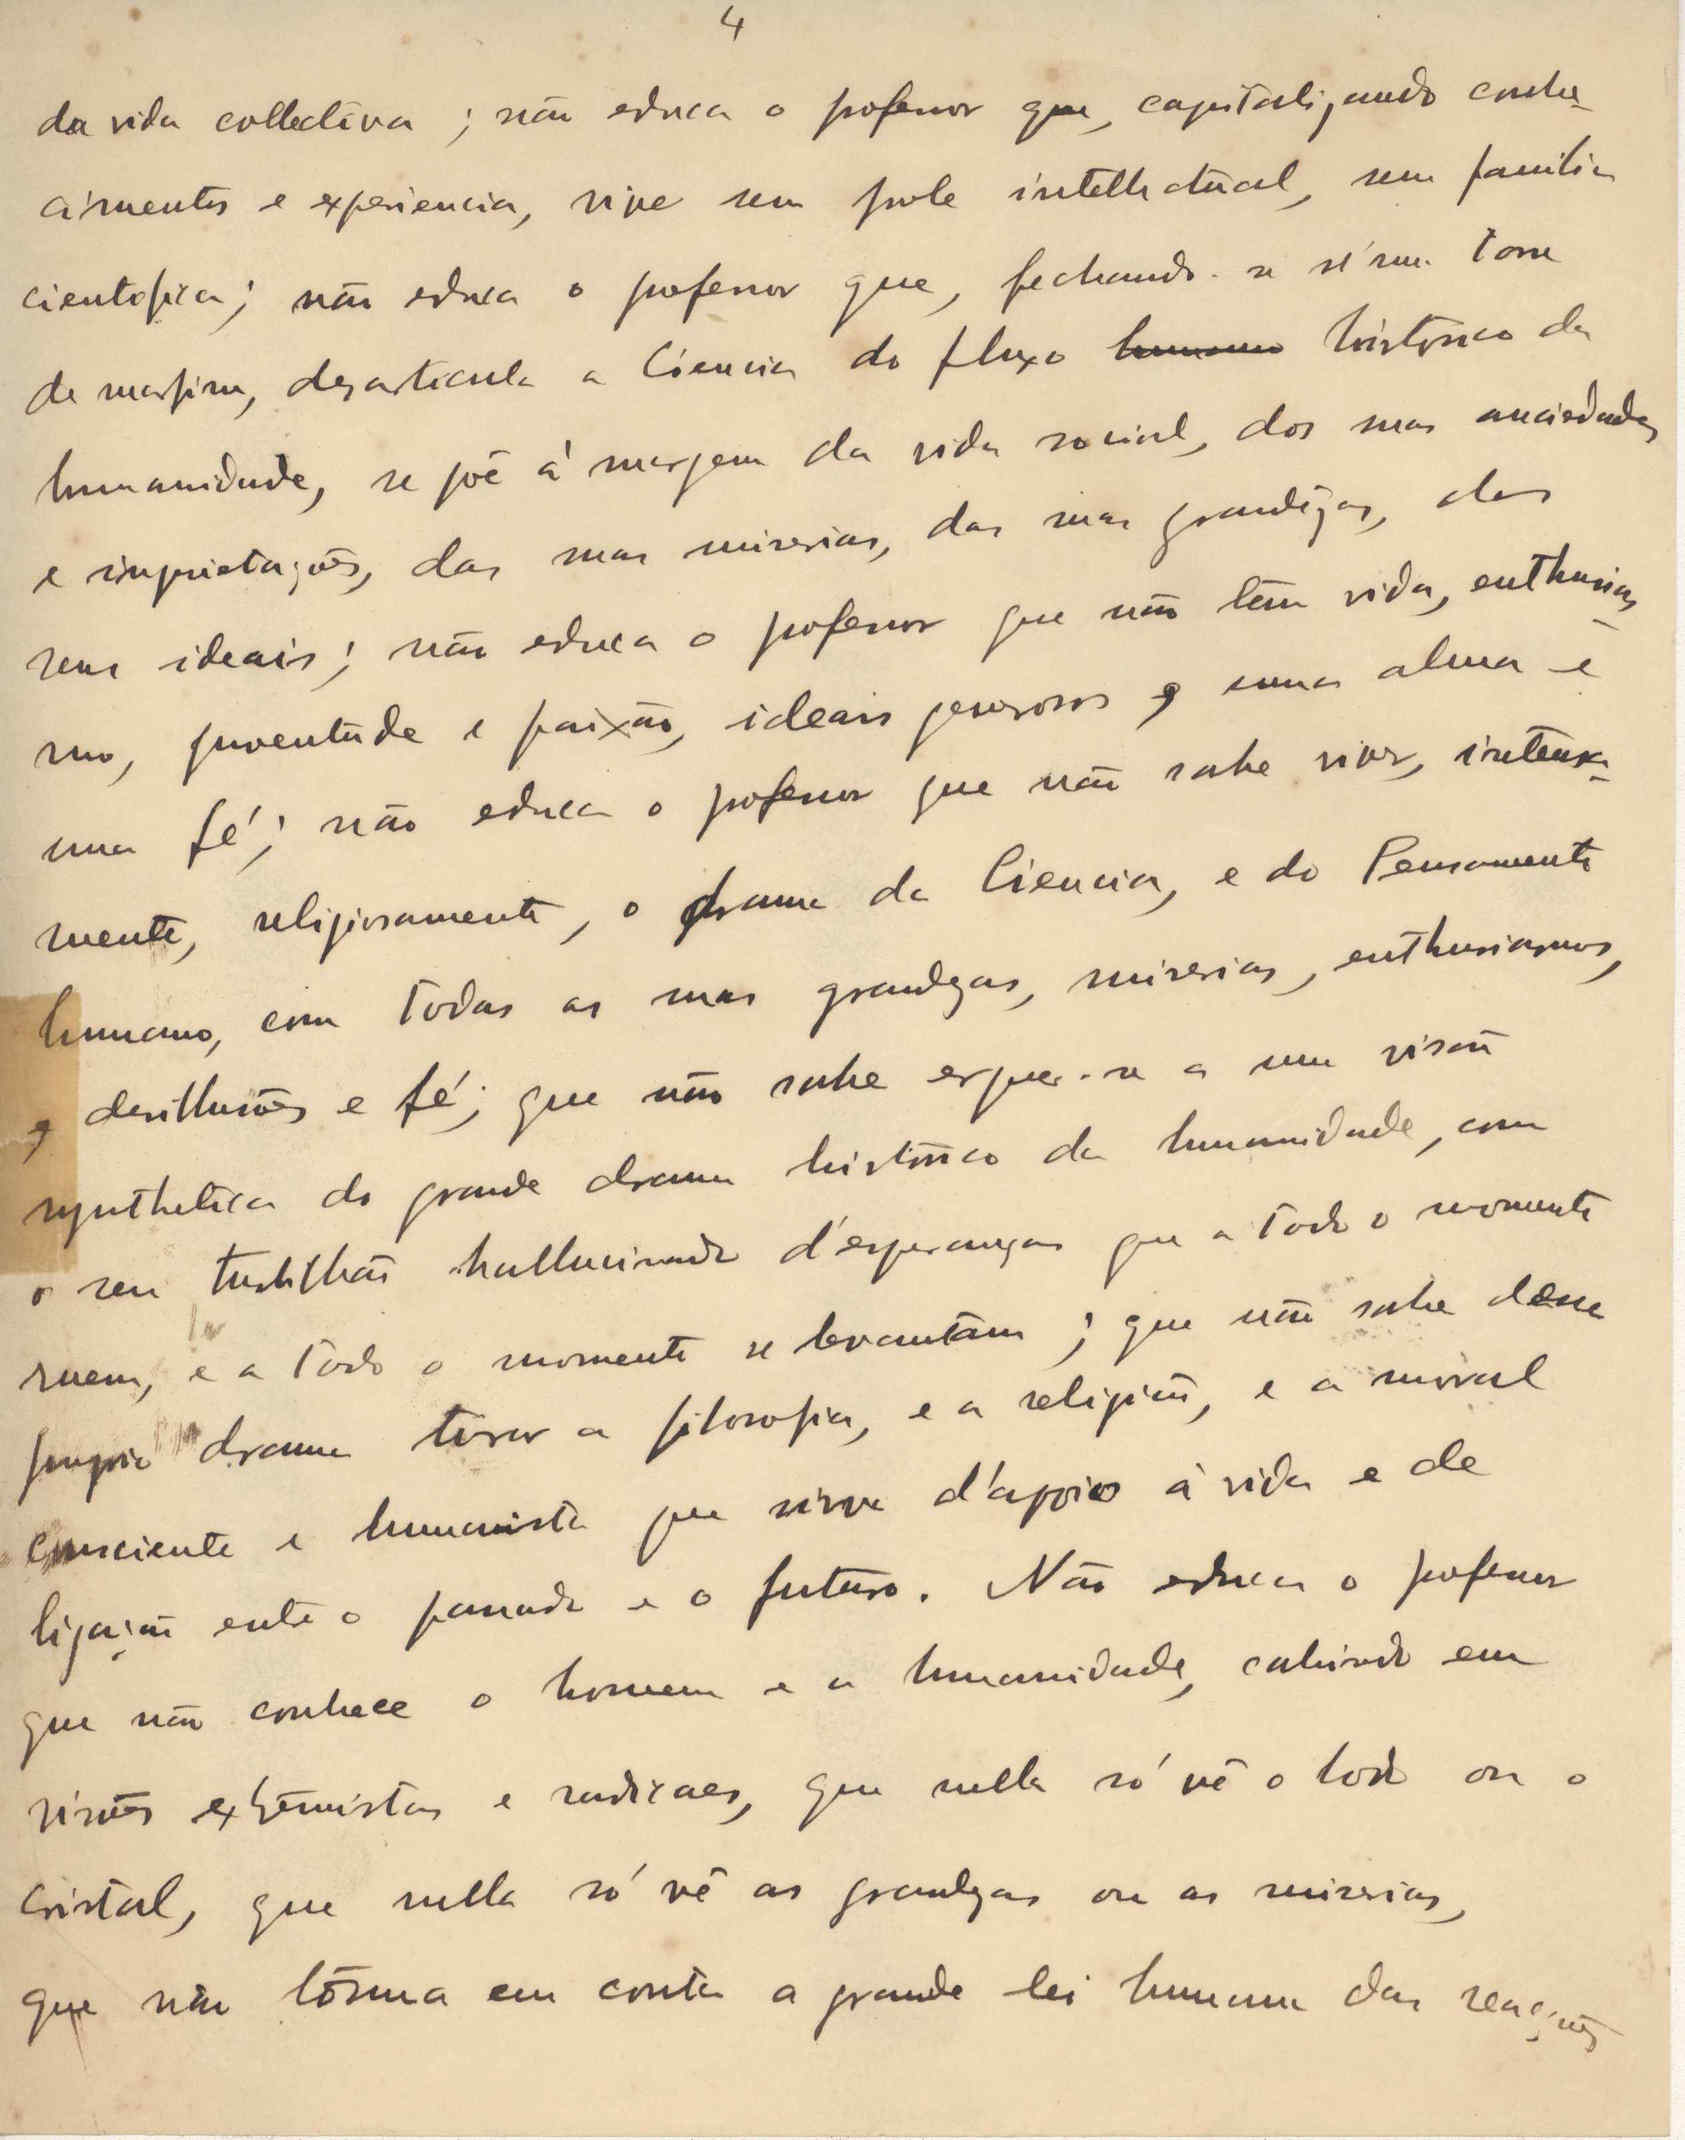 4
da vida collectiva ; não educa o professor que, capitalizando conhe-
cimentos e experiencia, vive sem prole intellectual, sem familia
cientifica ; não educa o professor que, fechando-se n'uma torre
de marfim, desarticula a Ciencia do fluxo humano historico da
humanidade, se põe á margem da vida social, das suas anciedades
e inquietações, das suas miserias, das suas grandezas, dos
seus ideais ; não educa o professor que não têm vida, enthusias-
mo, juventude e paixão, ideais generosos e uma alma e
uma fé ; não educa o professor que não sabe viver, intensa-
mente, religiosamente, o drama da Ciencia, e do Pensamento
humano, com todas as suas grandezas, miserias, enthusiasmos,
e desillusões e fé ; que não sabe erguer-se a uma visão
synthetica do grande drama histórico da humanidade, com
o seu turbilhão hallucinado d'esperanças que a todo o momento
ruem, e a todo o momento se levantam ; que não sabe desse
proprio drama tirar a filosofia, e a religião, e a moral
consciente e humanista que sirva d'apoio á vida e de
ligação entre o passado e o futuro. Não educa o professor
que não conhece o homem e a humanidade, cahindo em
visões extremistas e radicaes, que nella só vê o lodo ou o
cristal, que nella só vê as grandezas ou as miserias,
que não tôma em conta a grande lei humana das reações